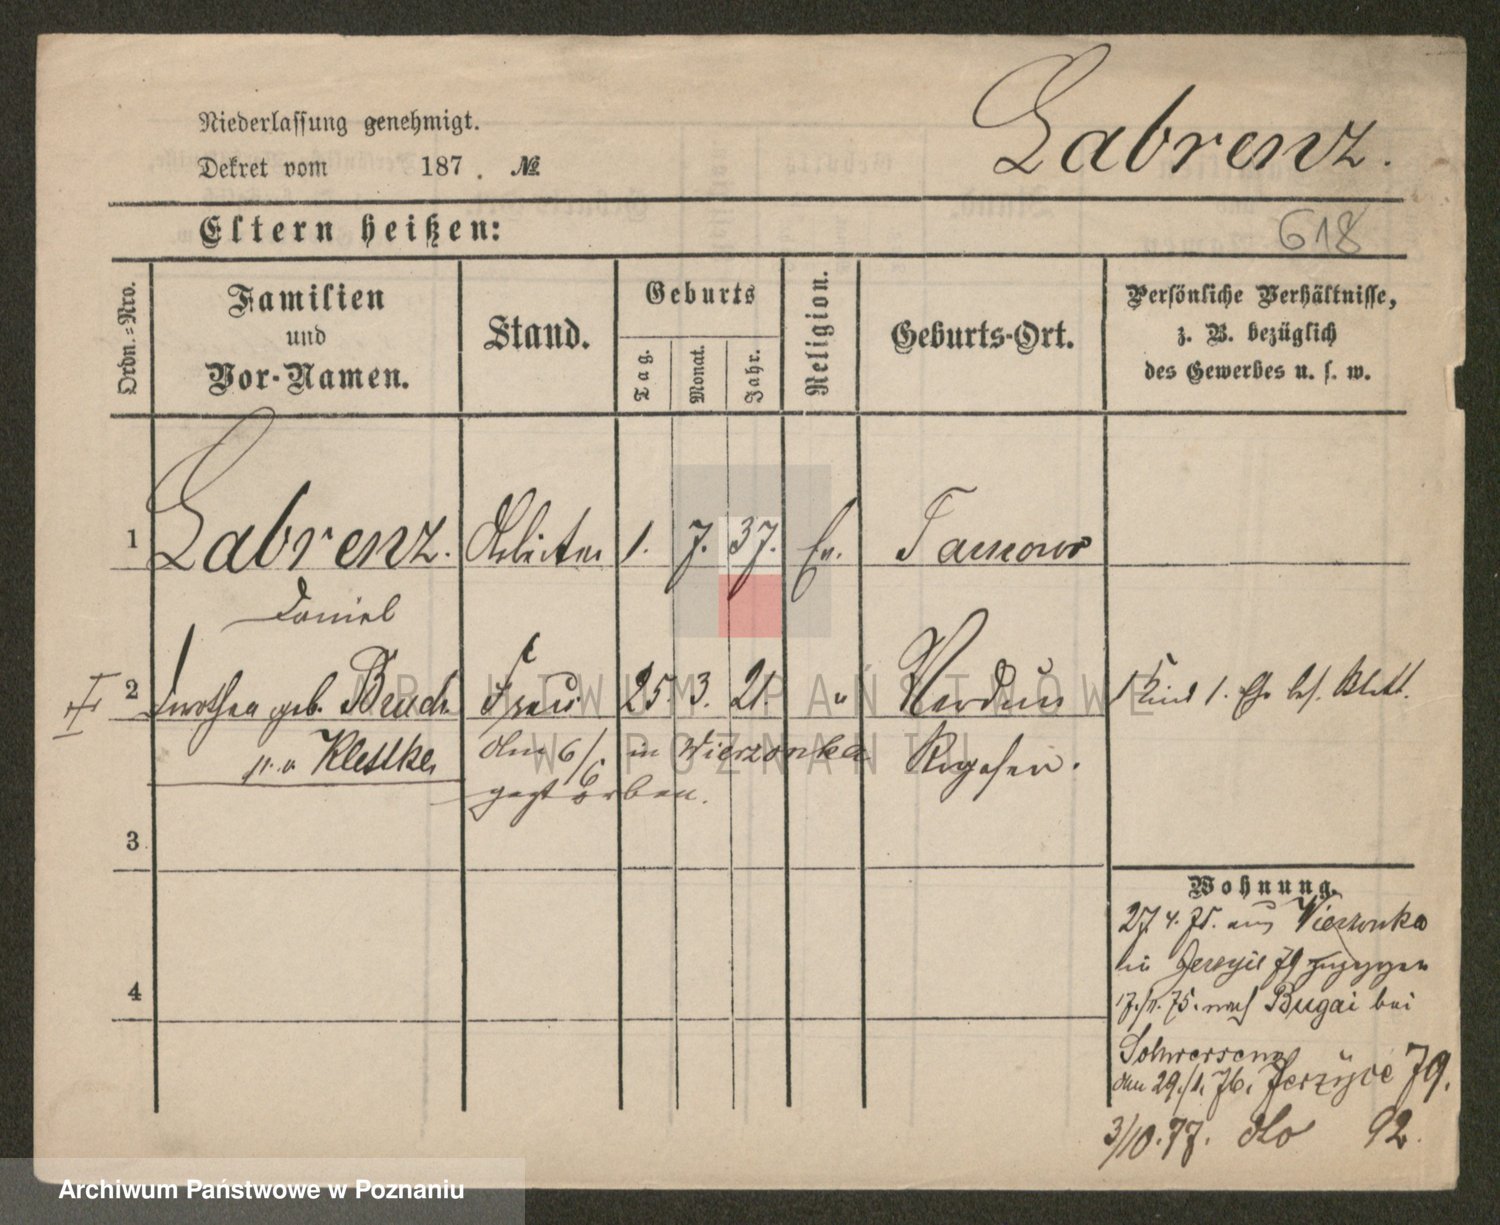 Gabrenz.
Niederlassung genehmigt.
Dekret vom 187 . №
Eltern heißen:
618
Ordn.=Nro.
Familien
und
Vor-Namen.
Stand.
Geburts
Tag.
Monat.
Jahr.
Religion.
Geburts-Ort.
Persönliche Verhältnisse,
z. B. bezüglich
des Gewerbes u. s. w.
1 Gabrenz. Arbeiter 1. 7. 37. Ev. Tarnowo
Daniel
II 2 Dorothea geb. Bruch Frau 25. 3. 21. " Werdum 1 Kind 1. Eh. bes. Blatt.
Klettke am 6/6 in Wierzonka Rogasen.
gestorben.
3
4
Wohnung.
27. 4. 75. aus Wierzonka
in 79 zugezogen
75. nach Bugai bei
Schwersenz
den 29./1. 76. Jerzyce 79.
3/10. 77. dto 92.
ARCHIWUM PAŃSTWOWE
W POZNANIU
Archiwum Państwowe w Poznaniu